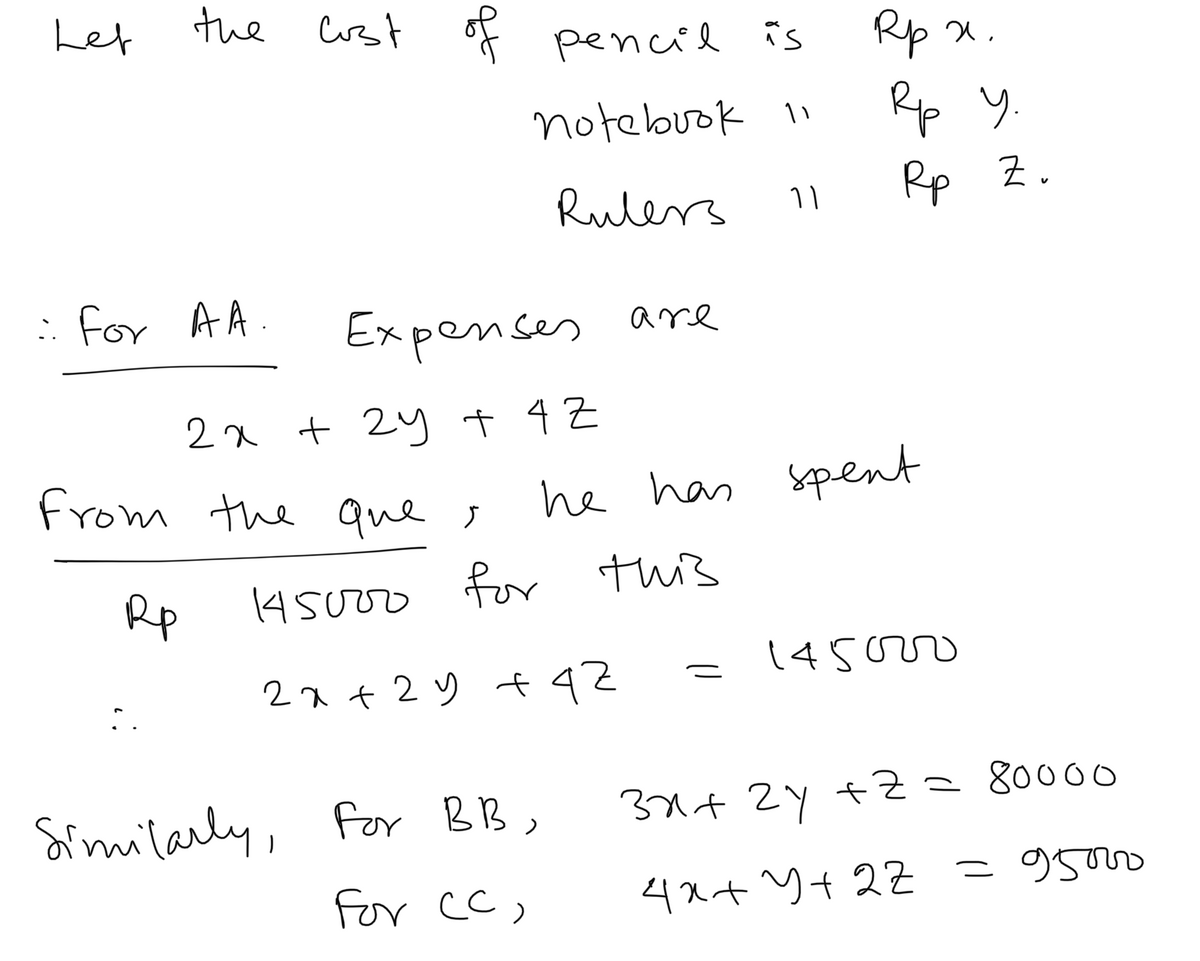 Let the cost of pencil is Rp x.
notebook " Rp y.
Rulers " Rp z.
∴ For AA. Expenses are
2x + 2y + 4z
From the que, he has spent
Rp 145000 for this
∴ 2x + 2y + 4z = 145000
Similarly, For BB, 3x + 2y + z = 80000
For CC, 4x + y + 2z = 95000